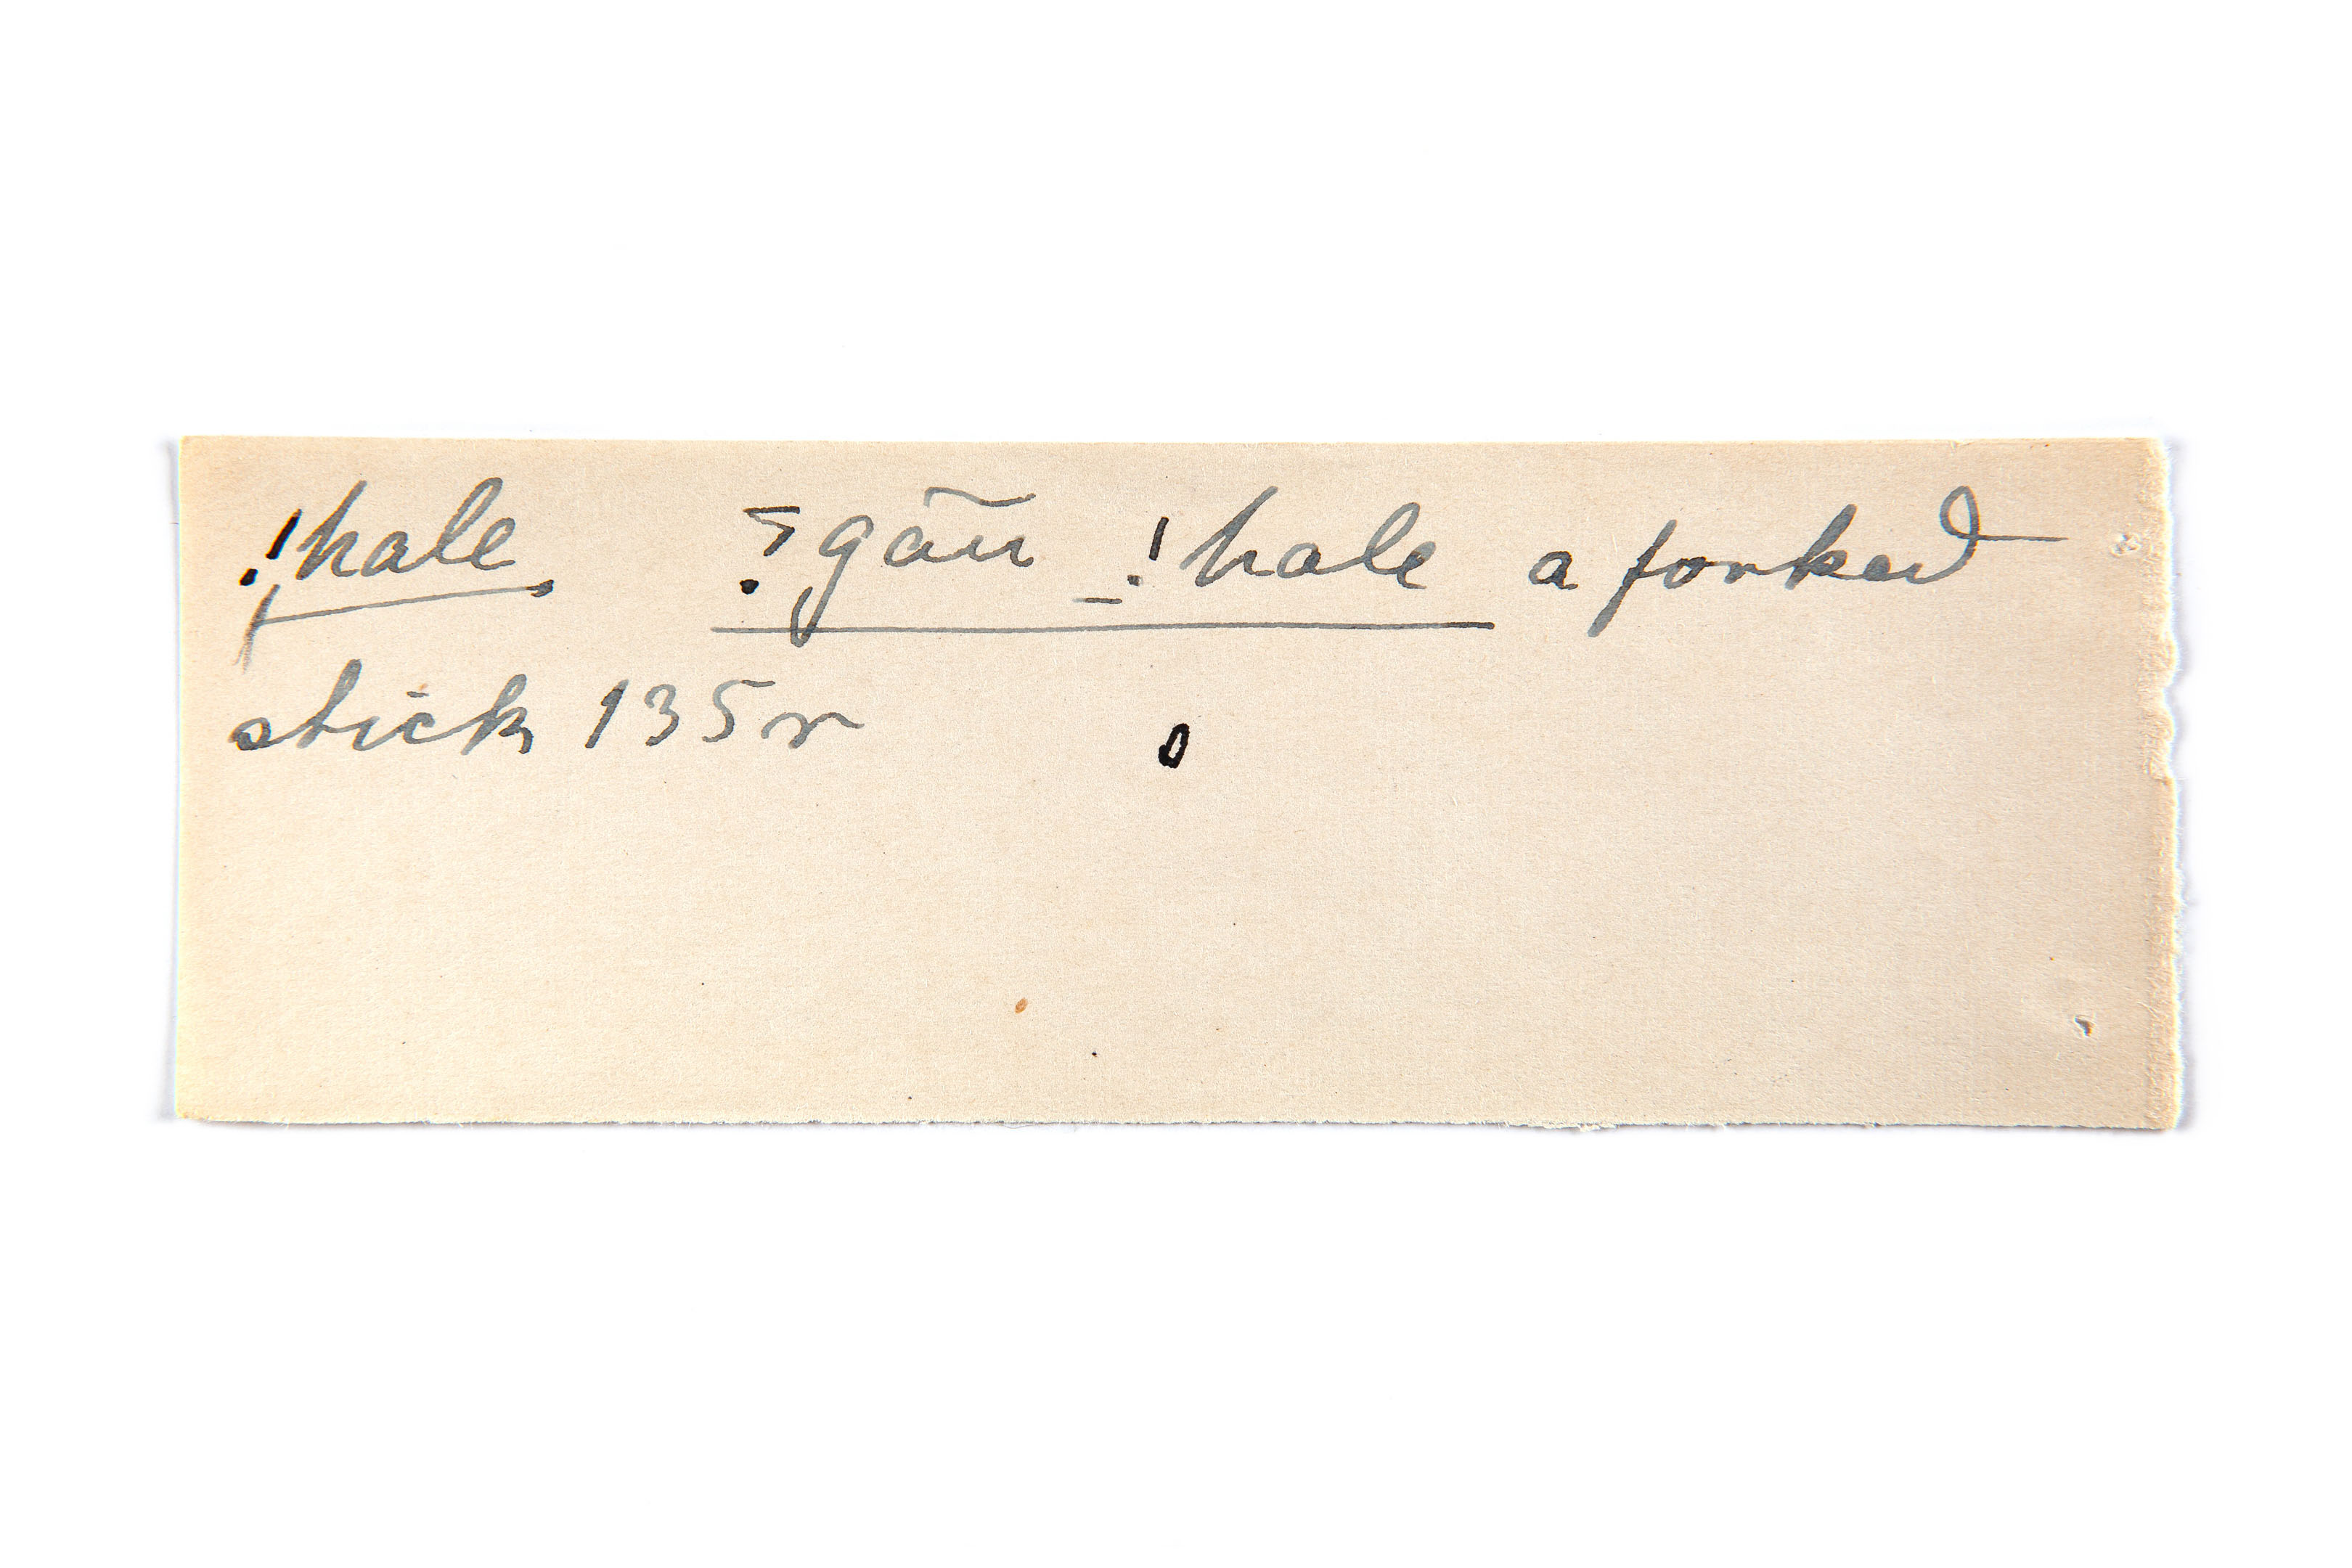 !hale. ⹎gãu_!hale a forked
stick 135r